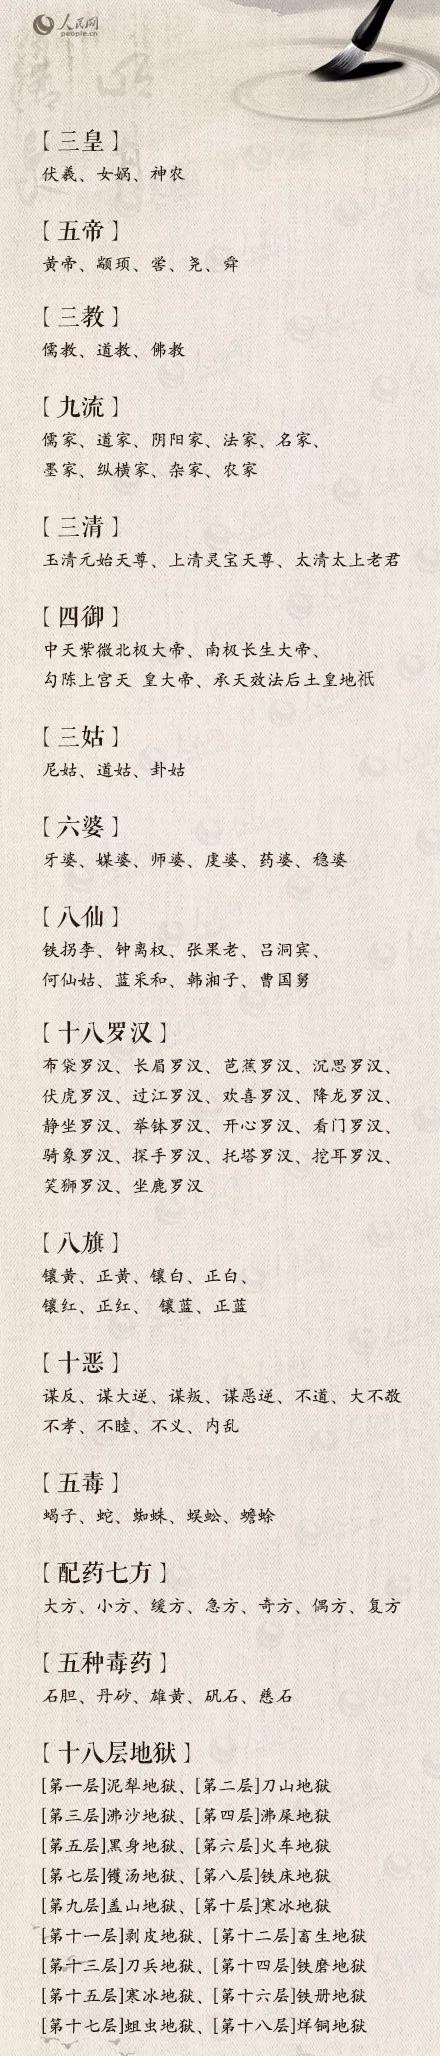 人民网
people.cn
【三皇】
伏羲、女娲、神农
【五帝】
黄帝、颛顼、喾、尧、舜
【三教】
儒教、道教、佛教
【九流】
儒家、道家、阴阳家、法家、名家、
墨家、纵横家、杂家、农家
【三清】
玉清元始天尊、上清灵宝天尊、太清太上老君
【四御】
中天紫微北极大帝、南极长生大帝、
勾陈上宫天 皇大帝、承天效法后土皇地祇
【三姑】
尼姑、道姑、卦姑
【六婆】
牙婆、媒婆、师婆、虔婆、药婆、稳婆
【八仙】
铁拐李、钟离权、张果老、吕洞宾、
何仙姑、蓝采和、韩湘子、曹国舅
【十八罗汉】
布袋罗汉、长眉罗汉、芭蕉罗汉、沉思罗汉、
伏虎罗汉、过江罗汉、欢喜罗汉、降龙罗汉、
静坐罗汉、举钵罗汉、开心罗汉、看门罗汉、
骑象罗汉、探手罗汉、托塔罗汉、挖耳罗汉、
笑狮罗汉、坐鹿罗汉
【八旗】
镶黄、正黄、镶白、正白、
镶红、正红、 镶蓝、正蓝
【十恶】
谋反、谋大逆、谋叛、谋恶逆、不道、大不敬
不孝、不睦、不义、内乱
【五毒】
蝎子、蛇、蜘蛛、蜈蚣、蟾蜍
【配药七方】
大方、小方、缓方、急方、奇方、偶方、复方
【五种毒药】
石胆、丹砂、雄黄、矾石、慈石
【十八层地狱】
[第一层]泥犁地狱、[第二层]刀山地狱
[第三层]沸沙地狱、[第四层]沸屎地狱
[第五层]黑身地狱、[第六层]火车地狱
[第七层]镬汤地狱、[第八层]铁床地狱
[第九层]盖山地狱、[第十层]寒冰地狱
[第十一层]剥皮地狱、[第十二层]畜生地狱
[第十三层]刀兵地狱、[第十四层]铁磨地狱
[第十五层]寒冰地狱、[第十六层]铁册地狱
[第十七层]蛆虫地狱、[第十八层]烊铜地狱